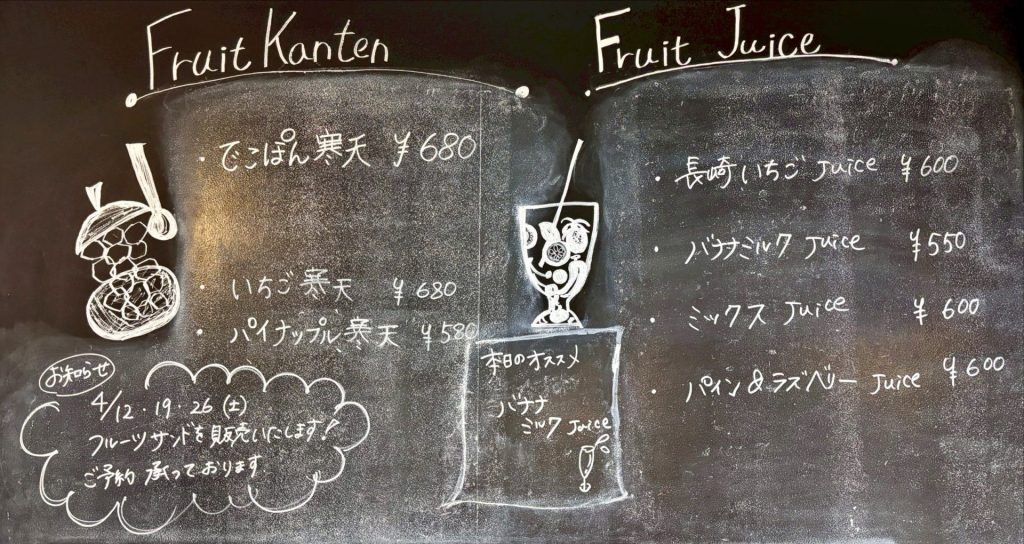 Fruit Kanten
・でこぽん寒天 ¥680
・いちご寒天 ¥680
・パイナップル寒天 ¥580
お知らせ
4/12・19・26(土)
フルーツサンドを販売いたします!
ご予約承っております
本日のオススメ
バナナ
ミルク Juice
Fruit Juice
・長崎いちご Juice ¥600
・バナナミルク Juice ¥550
・ミックス Juice ¥600
・パイン&ラズベリー Juice ¥600